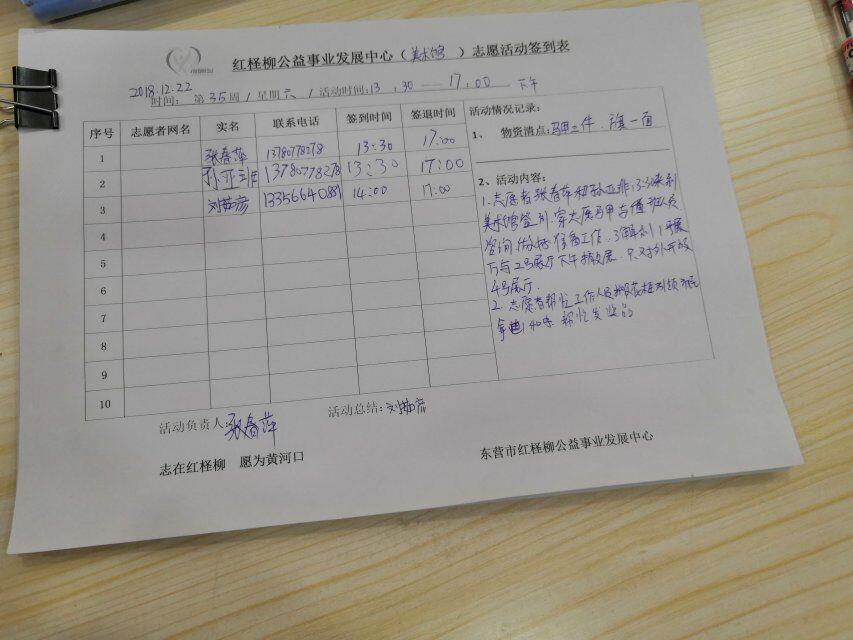 红柽柳公益事业发展中心（美术馆 ）志愿活动签到表
2018.12.22
时间: 第35周/星期六/活动时间:13:30—17:00 下午
序号 志愿者网名 实名 联系电话 签到时间 签退时间 活动情况记录:
1 张春萍 13780778278 13:30 17:00
2 孙亚非 13780778278 13:30 17:00
3 刘茹彦 14:00 17:00
4
5
6
7
8
9
10
1、 物资清点: 马甲二件、旗一面
2、活动内容:
1.志愿者张春萍和孙亚非13:30来到
美术馆签到.穿志愿马甲与值班人员
咨询.做好准备工作.
厅与2号展厅下午 只对外开放
4号展厅.
2.志愿者帮忙工作人员
帮忙发
活动负责人: 张春萍 活动总结: 刘茹彦
志在红柽柳 愿为黄河口
东营市红柽柳公益事业发展中心